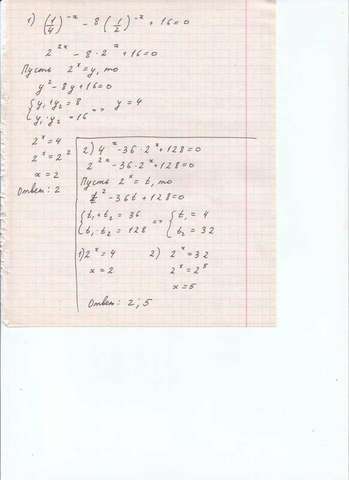 1) (1/4)^-x - 8 (1/2)^-x + 16 = 0
2^2x - 8 · 2^x + 16 = 0
Пусть 2^x = y, то
y^2 - 8y + 16 = 0
{ y1 + y2 = 8
y1 · y2 = 16 => y = 4
2^x = 4
2^x = 2^2
x = 2
Ответ: 2
2) 4^x - 36 · 2^x + 128 = 0
2^2x - 36 · 2^x + 128 = 0
Пусть 2^x = t, то
t^2 - 36t + 128 = 0
{ t1 + t2 = 36
t1 · t2 = 128 => { t1 = 4
t2 = 32
1) 2^x = 4
x = 2
2) 2^x = 32
2^x = 2^5
x = 5
Ответ: 2; 5